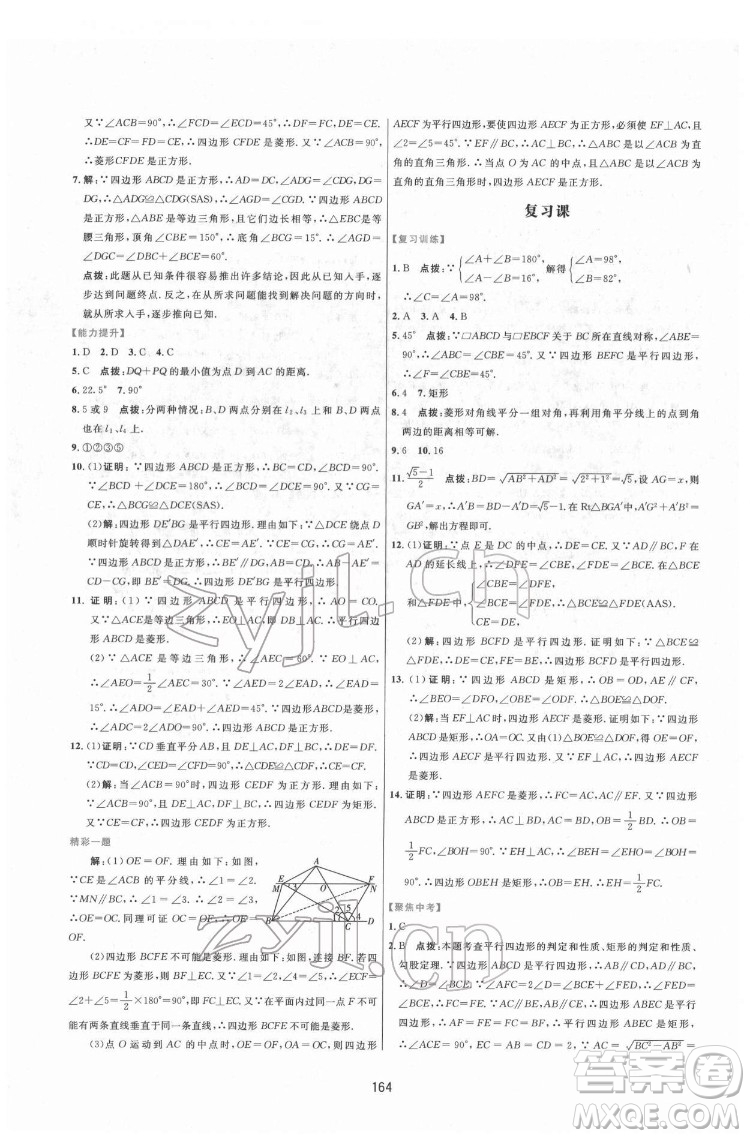 又∵∠ACB=90°,∴∠FCD=∠ECD=45°,∴DE=CE.
∴DE=CF=FD=CE,∴四边形 CFDE 是菱形.∵∠ACB=90°,
∴菱形 CFDE 是正方形.
7.解:∵四边形 ABCD 是正方形,∴AD=DC,∠ADG=∠CDG,DG=
DG,∴△ADG≌△CDG(SAS),∴∠AGD=∠CGD.∵四边形
ABCD 是正方形,△ABE 是等边三角形,∴△CBE 是等
腰三角形,顶角∠CBE=150°,∴∠BCE=15°.∴∠AGD=
∠DGC=∠DBC+∠BCE=60°.
点拨:此题从已知条件很容易推出许多结论,但不知从何入手,逐
步达到问题终点.反之,在从所求问题不能找到解决问题的方向时,
就从所求入手,逐步推向已知.
【能力提升】
1.D 2.D 3.C 4.C
5.C 点拨:DQ+PQ 的最小值为点 D 到 AC 的距离.
6.22.5° 7.90°
8.5或9 点拨:分两种情况:B、D 两点分别在 l₂、l₃上;B、D 两
点在 l₁、l₄上.
9.①②③⑤
10.(1)证明:∵四边形 ABCD 是正方形,∴BC=CD,∠BCD=90°.
∵∠BCD+∠DCE=90°,∴∠BCD=∠DCE=90°.又∵CG=
CE,∴△BCG≌△DCE(SAS).
(2)解:四边形 DE′BG 是平行四边形.理由如下:∵△DCE 绕点 D
顺时针旋转得到△DAE′,∴CE=AE′.∵CE=CG,∴CG=AE′.
∵四边形 ABCD 是正方形,∴BE′∥DG,AB=CD,∴AB-AE′=
CD-CG,即 BE′=DG,∴四边形 DE′BG 是平行四边形.
11.证明:(1)∵四边形 ABCD 是平行四边形,∴AO=CO.
又∵△ACE 是等边三角形,∴EO⊥AC,即 DB⊥AC,∴平行
四边形 ABCD 是菱形.
(2)∵△ACE 是等边三角形,∴∠AEC=60°.∵EO⊥AC,
∴∠AEO=1/2∠AEC=30°.∵∠AED=2∠EAD,∴∠EAD=
15°,∴∠ADO=∠EAD+∠AED=45°.∵四边形ABCD是菱形,
∴∠ADC=2∠ADO=90°,∴四边形 ABCD 是正方形.
12.(1)证明:∵CD 垂直平分 AB,且 DE⊥AC,DF⊥BC.
∵CD=CD,∠CED=∠CFD=90°,∴△CED≌△CFD,∴CE=CF.
(2)解:当∠ACB=90°时,四边形 CEDF 是正方形.理由如下:
∵∠ACB=90°,∠CED=∠CFD=90°,∴四边形 CEDF 为矩形.
又∵CE=CF,∴四边形 CEDF 为正方形.
精彩一题
解:(1)OE=OF.理由如下:
∵CE 是∠ACB 的平分线,∴∠1=∠2.
∵MN∥BC,∴∠1=∠3,∴∠2=∠3,
∴OE=OC.同理可得 OF=OC,
∴OE=OF.
A
M E O F N
B C D
3 2 5 1 4
(2)四边形 BCFE 不可能是菱形.理由如下:如图,连接 BF.若四
边形 BCFE 为菱形,则 BF⊥EC.∵∠1=∠2,∠4=∠5,∴∠ECF=
∠2+∠5=1/2×180°=90°,即 FC⊥EC.又∵在平面内过一点 F 不可
能有两条直线垂直于同一条直线,∴四边形 BCFE 不可能为菱形.
(3)点 O 运动到 AC 的中点时,OE=OF,OA=OC,则四边形
AECF 为平行四边形,要使四边形 AECF 为正方形,必须使 EF⊥AC,
∵∠2=∠5=45°.又∵EF∥BC,∴AC⊥BC,∴△ABC 是以∠ACB 为
直角的直角三角形.∴当点 O 为 AC 的中点,且△ABC 是以∠ACB 为
直角的直角三角形时,四边形 AECF 是正方形.
复习课
【复习训练】
1.B 点拨:∵{∠A+∠B=180°, ∠A-∠B=16°, 解得{∠A=98°, ∠B=82°,
∴∠C=∠A=98°.
2.A 3.A 4.B
5.45° 点拨:∵□ABCD 与□EBCF 关于 BC 所在直线对称,∴∠ABC=
∠EBC=45°,∴∠ABE=90°.∵四边形 BEFC 是平行四边形,
∴∠F=∠CBE=45°.
6.4 7.矩形
8.4 点拨:菱形对角线平分一组对角,再根据角平分线上的点到角
两边的距离相等可解.
9.6 10.16
11.(√5-1)/2 点拨:BD=√(AB²+AD²)=√(2²+1²)=√5,设 AG=x,则
GA′=x,∴A′B=BD-A′D=√5-1.在 Rt△BGA′中,A′G²+A′B²=
GB²,解方程即可.
12.(1)证明:∵点 E 是 DC 的中点,∴DE=CE.∵AB∥CD,F 在
AD 的延长线上,∴∠DFE=∠EBC,∠BCE=∠FDE.在
△BCE 与△FDE 中,{∠EBC=∠DFE, ∠BCE=∠FDE, CE=DE, ∴△BCE≌△FDE(AAS).
(2)解:四边形 BCFD 是平行四边形.理由如下:∵△BCE≌
△FDE,∴DF=BC.又∵DF∥BC,∴四边形 BCFD 为平行四边形.
13.(1)证明:∵四边形 ABCD 是矩形,∴OB=OD,AE∥CF,
∴∠BEO=∠DFO,∠OBE=∠ODF.∴△BOE≌△DOF.
(2)解:当 EF⊥AC 时,四边形 AECF 是菱形.证明如下:∵四边形
ABCD是矩形,∴OA=OC.∵△BOE≌△DOF,∴OE=OF,∴四边
形 AECF 是平行四边形.又∵EF⊥AC,∴四边形 AECF 是菱形.
14.证明:∵四边形 AEFC 是菱形,∴FC∥AC,∴AC=FC.∵四边形
ABCD 是正方形,∴AC=BD,AC⊥BD,∴OB=1/2BD=1/2AC=
1/2FC,∠BOH=90°.∵EH⊥AC,∴∠EHO=90°,∴OB∥EH.
∴四边形 OBEH 是矩形,∴EH=OB,∴EH=1/2FC.
【聚焦中考】
1.C
2.B 点拨:本题考查平行四边形的判定和性质、矩形的判定和性质、
勾股定理.∵四边形 ABCD 是平行四边形,∴AD∥BC,AD=BC,
∴∠D=∠BCE,∠DAF=∠CEF.∵E 在 BC 的延长线上,CE=BC,
∴AD=CE,∴△ADF≌△ECF,∴AF=EF,DF=CF,∴四边形
ACED 是平行四边形.
∴AE=AC,∴AF=FE=FC=FD,∴四边形 ABEC 是矩形,
∴∠BAC=∠ACE=90°,∴在 Rt△ABC 中,∵AC=√(BC²-AB²)=
164
zyjl.cn
zyjl.cn
答案圈
MXQE.COM